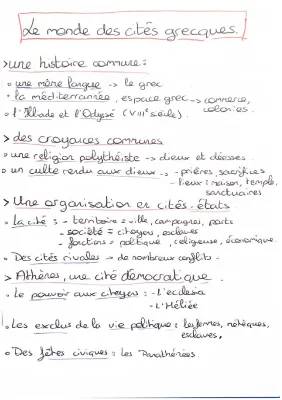 Le monde des cités grecques.
>une histoire commune:
o une même langue -> le grec
o la méditerrannée, espace grec -> commerce,
colonies.
o l'Illiade et l'Odyssé (VIIIe siècle).
> des croyances communes
o une religion polythéiste -> dieux et déesses.
o un culte rendu aux dieux - prières, sacrifices
- lieux: maison, temple,
sanctuaires
> Une organisation en cités-états
o la cité : - territoire = ville, campagnes, ports
- société = citoyens, esclaves
- fonctions = politique, religieuse, économique.
o Des cités rivales -> de nombreux conflits.
> Athènes, une cité démocratique
o Le pouvoir aux citoyens : - l'ecclesia
- l'Héliée
o Les exclus de la vie politique : les femmes, métèques,
esclaves,
o Des fêtes civiques : les Panathénées